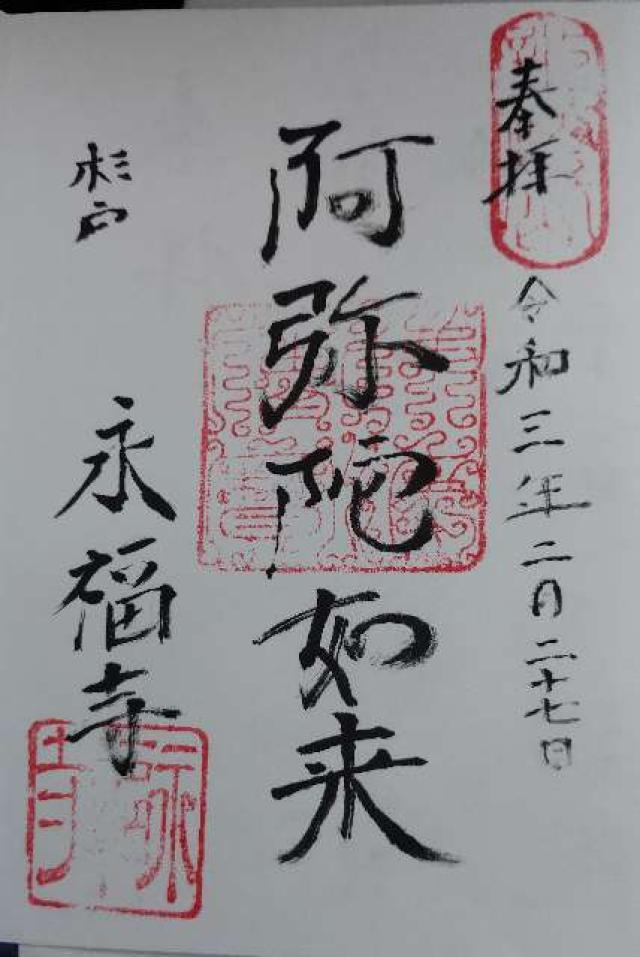 奉拝
令和三年二月二十七日
阿弥陀如来
永福寺